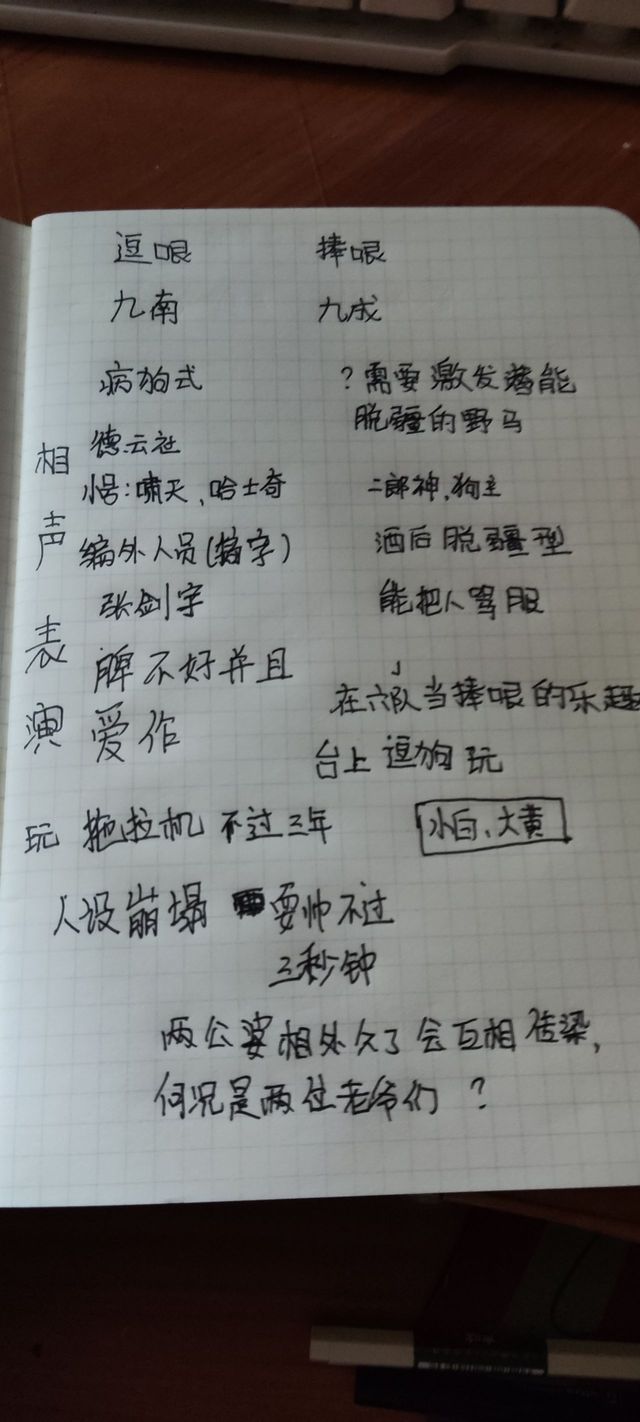 逗哏 捧哏
九南 九成
病狗式 ?需要激发潜能
脱疆的野马
相声表演
德云社
小号:啸天、哈士奇 二郎神,狗主
编外人员(搞字) 酒后脱疆型
张剑宇 能把人骂服
脾不好并且
爱作
在六队当捧哏的乐趣
台上逗狗玩
玩拖拉机不过三年 小白、大黄
人设崩塌 耍帅不过
三秒钟
两公婆相处久了会互相传染,
何况是两位老爷们?